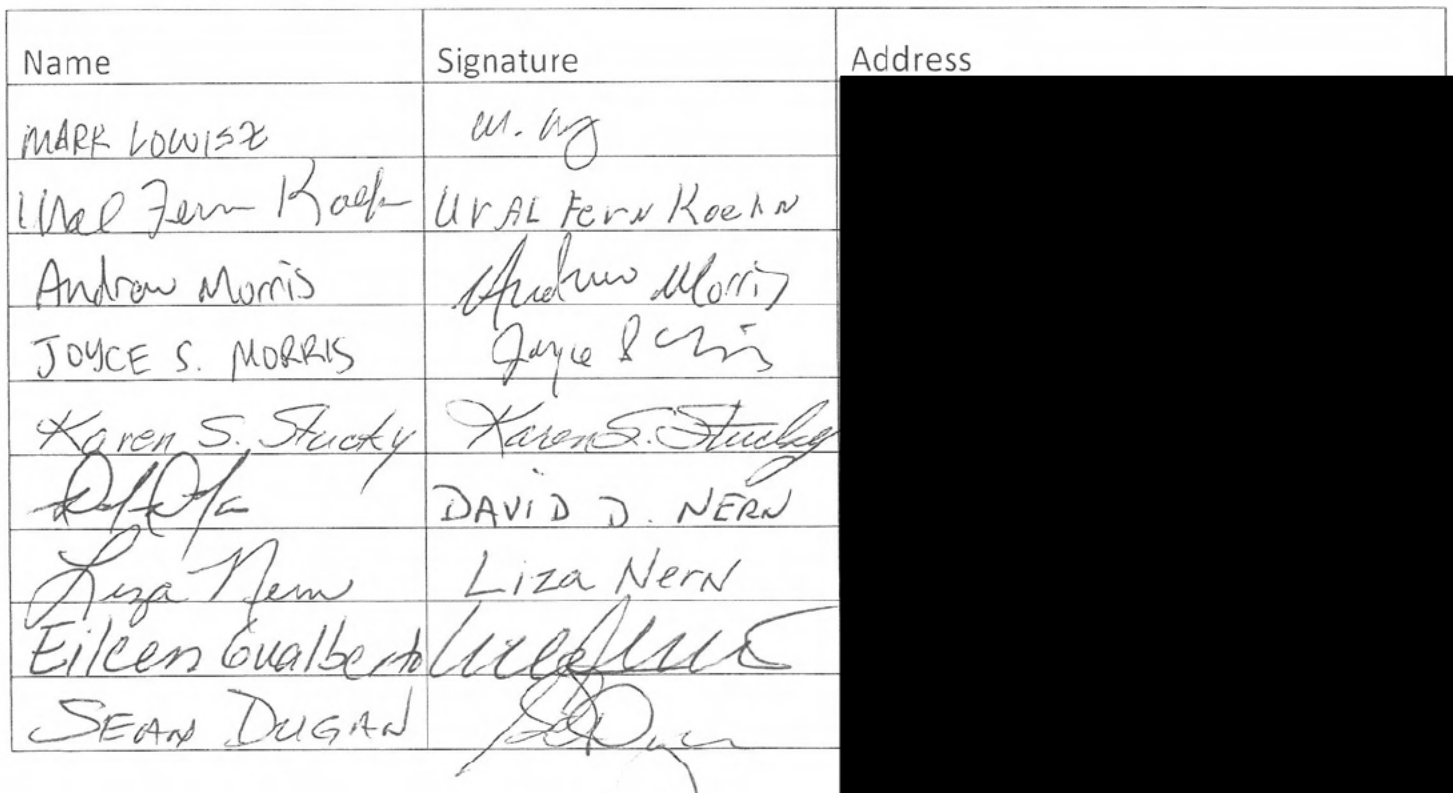 Name Signature Address
MARK LOWISZ
Uval Fern Koehn UVAL Fern Koehn
Andrew Morris Andrew Morris
JOYCE S. MORRIS Joyce S Morris
Karen S. Stucky Karen S. Stucky
DAVID D. NERN
Liza Nern Liza Nern
Eileen Gualberto
SEAN DUGAN